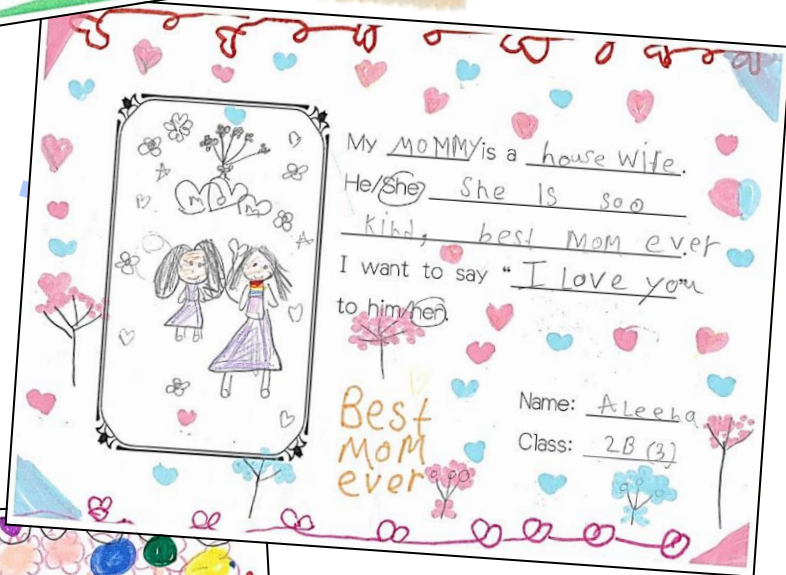 MOM
My MOMMY is a house Wife.
He/She She Is soo
Kind, best Mom ever
I want to say “I Love you”
to him/her.
Best
MOM
ever
Name: ALeeha
Class: 2B (3)